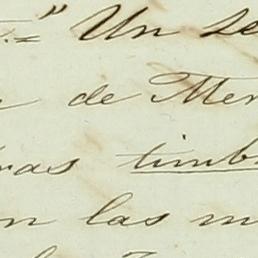 " Un se
de Mer
ras timb
n las m